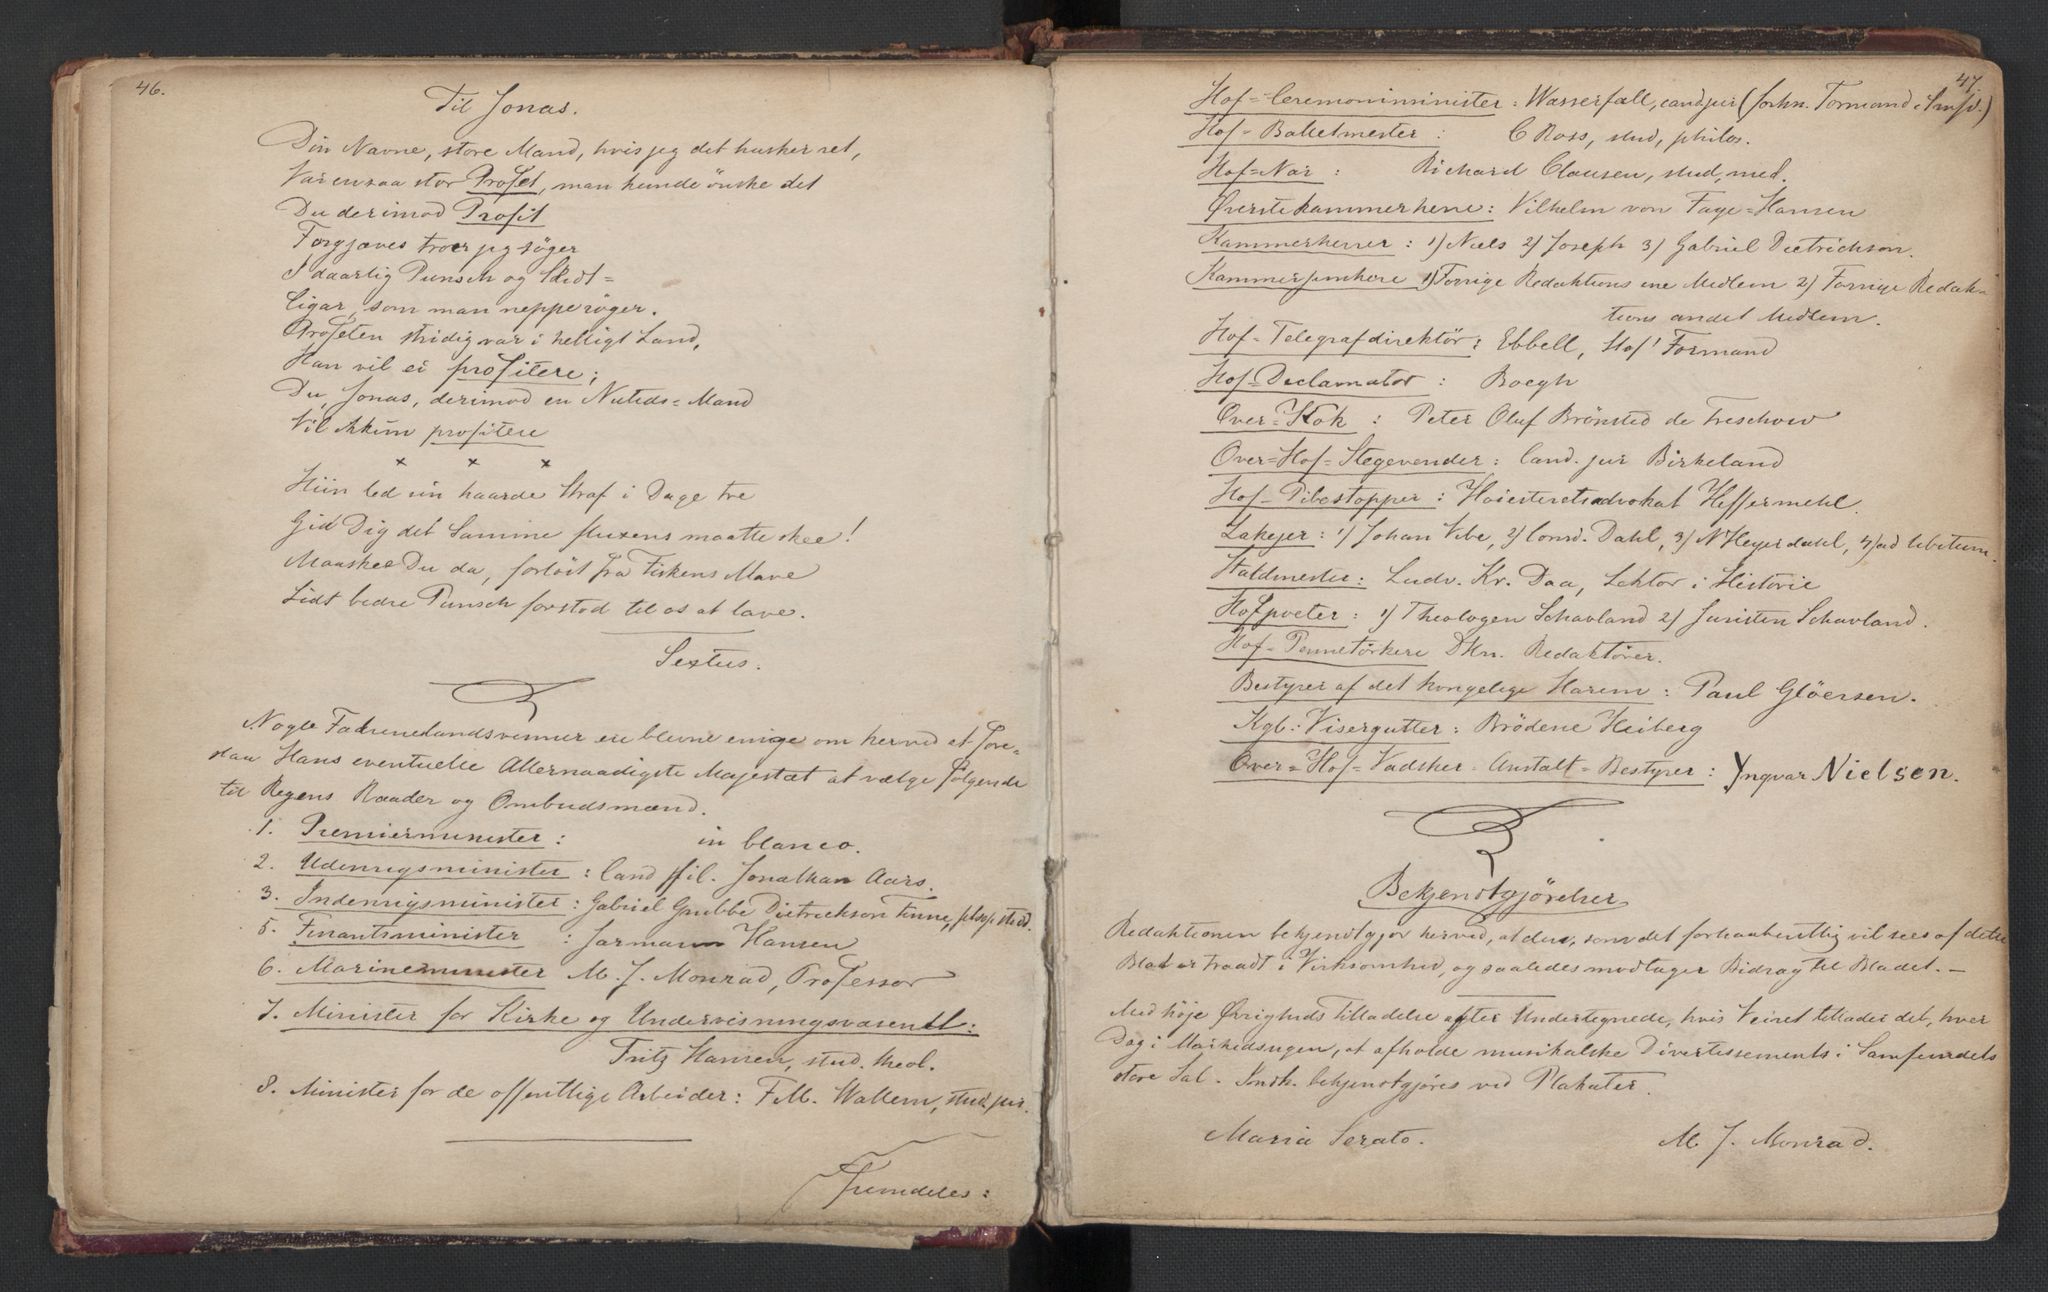 46.
Til Jonas.
Din Navne, store Mand, hvis jeg det husker ret,
Var en saa stor Profet, man kunde önske det
Du derimod Profit
Forgjæves troer jeg söger
I daarlig Punsch og Skidt=
Cigar, som man neppe röger.
Profeten stridig var i helligt Land,
Han vil ei profitere;
Du, Jonas, derimod en Nutids=Mand
Vil ikkun profitere
x x x
Hiin led sin haarde Straf i Dage tre
Gid Dig det Samme fluxens maatte skee!
Maaskee Du da, forlöst fra Fiskens Mave
Lidt bedre Punsch forstod til os at lave.
Sextus.
Nogle Fædrenelandsvenner ere blevne enige om herved at fore=
slaa Hans eventuelle Allernaadigste Majestæt at vælge fölgende
til Regens Raader og Ombudsmænd.
1. Premierminister: in blanco.
2. Udenrigsminister: Cand. fil. Jonathan Aars.
3. Indenrigsminister: Gabriel Grubbe Dietrichson Finne, stud.
5. Finantsminister : Jarmann Hansen
6. Marineminister M. J. Monrad, Professor
7. Minister for Kirke og Undervisningsvæsenet:
Fritz Hansen, stud. theol.
8. Minister for de offentlige Arbeider: F.M. Wallem, stud. jur.
Fremdeles:
47.
Hof=Ceremoniminister: Wasserfall, cand. jur (forhn. Formand i Smfd.)
Hof=Balletmester : C Ross, stud, philos.
Hof=Nar : Richard Clausen, stud, med.
Øverstekammerherre: Vilhelm von Faye=Hansen
Kammerherrer: 1) Niels 2) Joseph 3) Gabriel Dietrichson.
Kammerjunkere 1) Forrige Redaktions ene Medlem 2) Forrige Redak=
tions andet Medlem.
Hof=Telegrafdirektör: Ebbell, Hof' Formand
Hof=Declamator : Boegh
Over=Kok : Peter Oluf Brönsted de Treschow
Over=Hof=Stegevender: Cand. jur Birkeland
Hof=Pibestopper: Høiesteretsadvokat Heffermehl.
Lakejer: 1) Johan Vibe, 2) Consd. Dahl, 3) N Heyerdahl, 4) ad libitum.
Staldmester: Ludv. Kr. Daa, Lektor i Historie
Hofpoeter: 1) Theologen Schavland 2) Juristen Schavland.
Hof=Pennetörkere DHrr. Redaktörer.
Bestyrer af det kongelige Harem: Paul Glöersen.
Kgb: Visergutter: Brödrene Heiberg
Over=Hof=Vadsker=Anstalt=Bestyrer: Yngvar Nielsen.
Bekjendtgjörelser
Redaktionen bekjendtgjør herved, at den, som det forhaabentlig vil sees af dette
Blad er traadt i Virksomhed, og saaledes modtager Bidrag til Bladet. —
Med höje Øvrigheds Tilladelse agter Undertegnede, hvis Veiret tillader det, hver
Dag i Markedsugen, at afholde musikalske Divertissements i Samfundets
store Sal. Indh. bekjendtgjøres ved Plakater.
Maria Serato. M. J. Monrad.